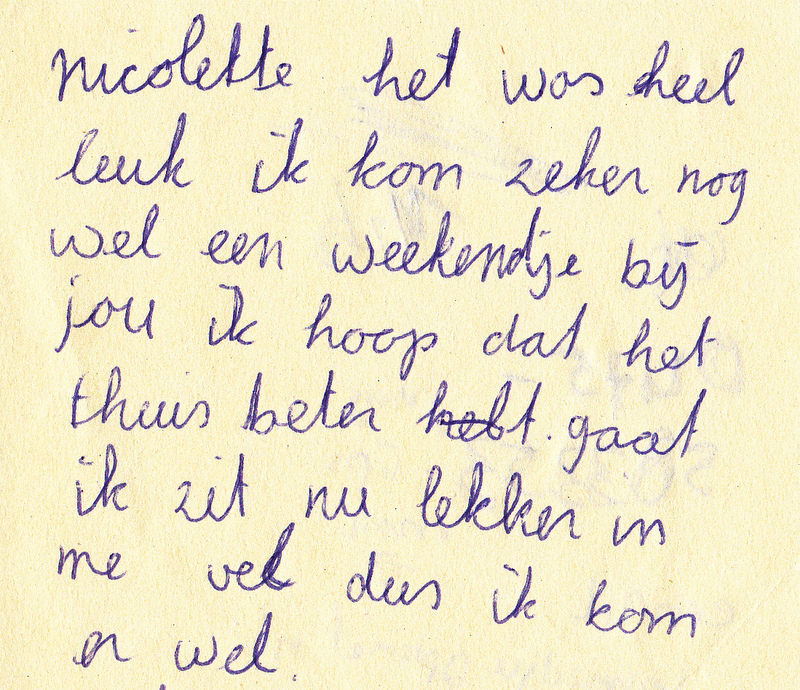 nicolette het was heel
leuk ik kom zeker nog
wel een weekendje bij
jou ik hoop dat het
thuis beter hebt. gaat
ik zit nu lekker in
me vel dus ik kom
er wel.